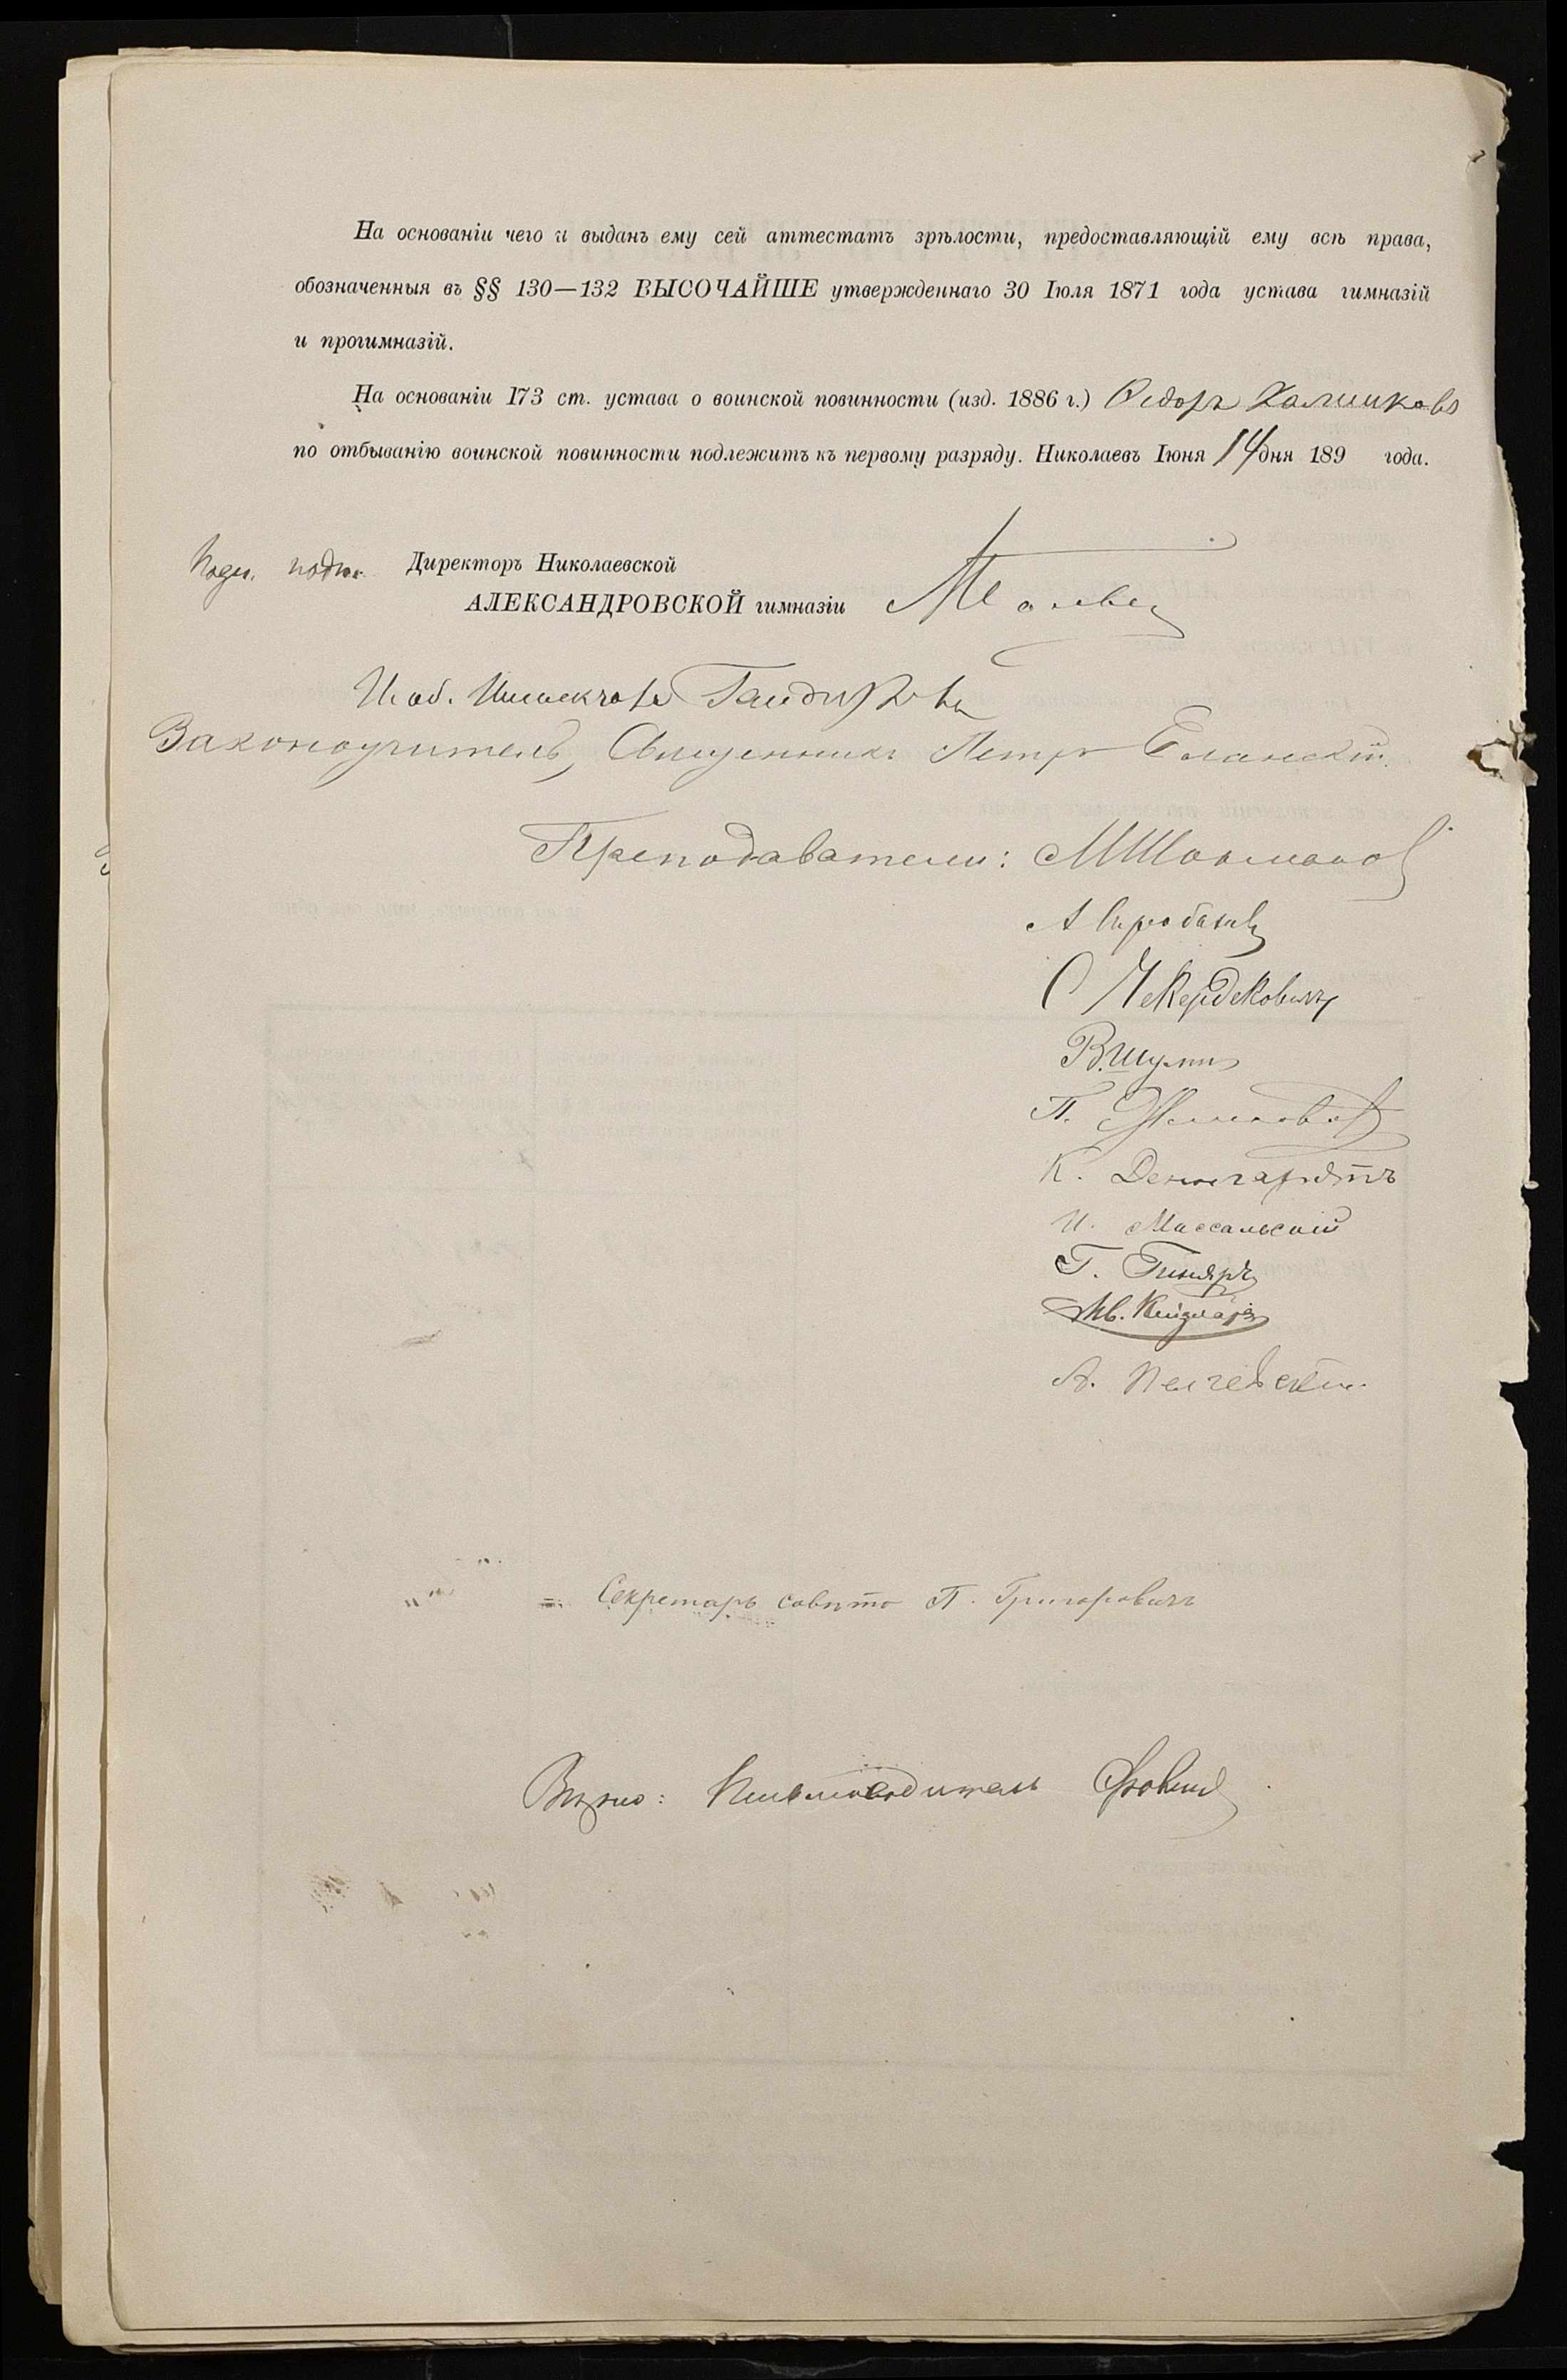 На основаніи чего и выданъ ему сей аттестатъ зрѣлости, предоставляющій ему всѣ права,
обозначенныя въ §§ 130—132 ВЫСОЧАЙШЕ утвержденнаго 30 Іюля 1871 года устава гимназій
и прогимназій.
На основаніи 173 ст. устава о воинской повинности (изд. 1886 г.) Ѳедоръ
по отбыванію воинской повинности подлежитъ къ первому разряду. Николаевъ Іюня 14 дня 189 года.
Директоръ Николаевской
АЛЕКСАНДРОВСКОЙ гимназіи
Законоучитель, Священникъ Петръ Еланскій.
Преподаватели:
С Чекердековичъ
В. Шульцъ
П.
К. Денгардтъ
И. Массальскій
Г.
Ив.
А.
Секретарь совѣта П. Григоровичъ
Вѣрно: Письмоводитель